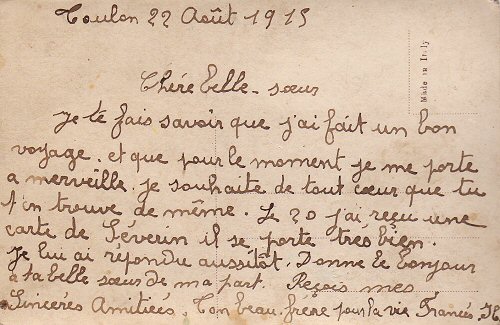 Toulon 22 Août 1915
Made in Italy
Chére belle-sœur
Je te fais savoir que j'ai fait un bon
voyage, et que pour le moment je me porte
a merveille. je souhaite de tout cœur que tu
t'en trouve de même. Le 20 j'ai reçu une
carte de Séverin il se porte tres bien.
Je lui ai répondu aussitôt. Donne le bonjour
à ta belle sœur de ma part. Reçois mes
Sincères Amitiées. Ton beau frère pour la vie Francés.